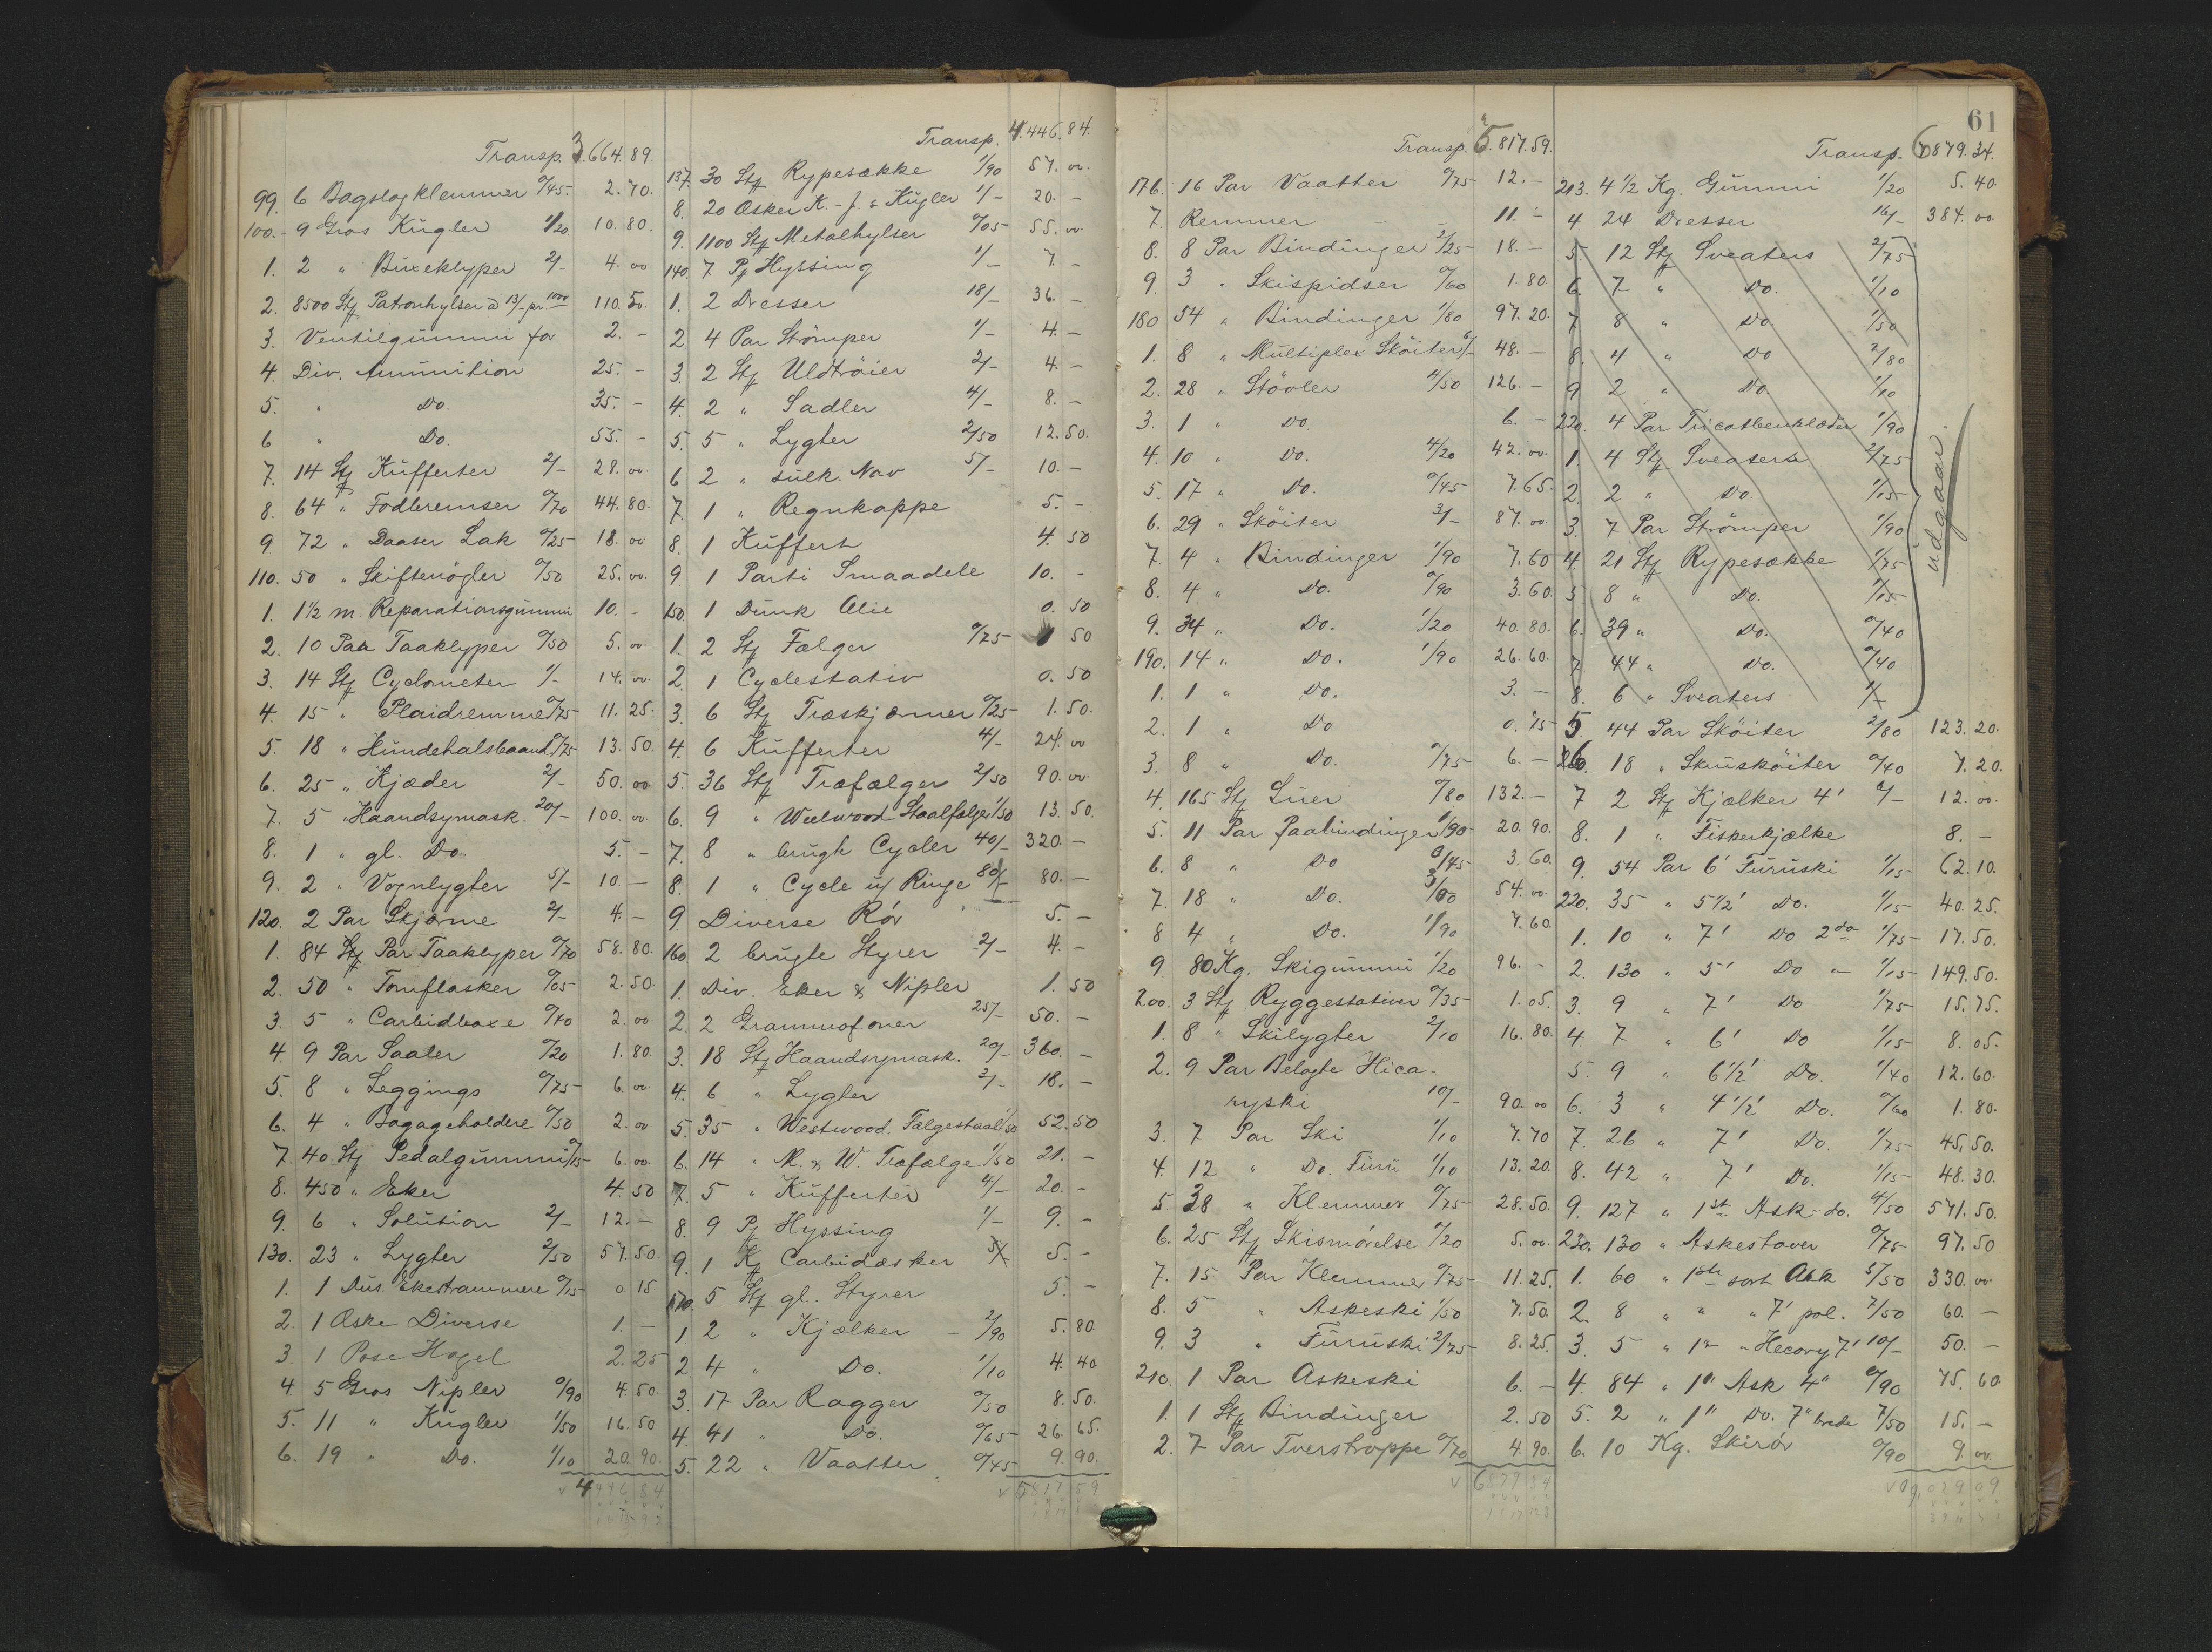 Transp. 3.664.89.
99. 6 Bagslagklemmer 0/45 2.70.
100. 9 Gros Kugler 1/20 10.80.
1. 2 " Buxeklyper 2/- 4.00
2. 8500 Stk Patronhylser à 13/- pr. 1000 110.50.
3. Ventilgummi for 2.-
4. Div. Amunition 25.-
5. " Do. 35.-
6 " Do. 55.-
7. 14 Stk Kufferter 2/- 28.00.
8. 64 " Fodbremser 0/70 44.80.
9. 72 " Daaser Lak 0/25 18.00
110. 50 " Skiftenøgler 0/50 25.00.
1. 1½ m. Reparationsgummi 10.-
2. 10 Par Taaklyper 0/50 5.00.
3. 14 Stk Cyclometer 1/- 14.00.
4. 15 " Plaidremme 0/75 11.25.
5. 18 " Hundehalsbaand 0/75 13.50.
6. 25 " Kjæder 2/- 50.00
7. 5 " Haandsymask. 20/- 100.00.
8. 1 " gl. Do. 5.-
9. 2 " Vognlygter 5/- 10.-
120. 2 Par Skjærme 2/- 4.-
1. 84 Stk Par Taaklyper 0/70 58.80.
2. 50 " Tomflasker 0/05 2.50.
3. 5 " Carbidboxe 0/40 2.00
4. 9 Par Saaler 0/20 1.80.
5. 8 " Leggings 0/75 6.00.
6. 4 " Bagageholdere 0/50 2.00.
7. 40 Stk Pedalgummi 0/15 6.00.
8. 450 " Eker 4.50
9. 6 " Solution 2/- 12.-
130. 23 " Lygter 2/50 57.50.
1. 1 Dus. Ekestrammere 0/15 0.15.
2. 1 Æske Diverse 1.-
3. 1 Pose Hagel 2.25
4. 5 Gros Nipler 0/90 4.50.
5. 11 " Kugler 1/50 16.50
6. 19 " Do. 1/10 20.90.
4446 84
Transp. 4.446.84.
137. 30 Stk Rypesække 1/90 57.00.
8. 20 Æsker K.-f. s Kugler 1/- 20.-
9. 1100 Stk Metalhylser 0/05 55.00.
140. 7 Pk Hyssing 1/- 7.-
1. 2 Dresser 18/- 36.-
2. 4 Par Strömper 1/- 4.-
3. 2 Stk Uldtröier 2/- 4.-
4. 2 " Sadler 4/- 8.-
5. 5 " Lygter 2/50 12.50.
6 2 " sulk. Nav 5/- 10.-
7. 1 " Regnkappe 5.-
8. 1 Kuffert 4.50
9. 1 Parti Smaadele 10.-
150. 1 Dunk Olie 0.50
1. 2 Stk Fælger 0/75 1 50
2. 1 Cyclestativ 0.50
3. 6 Stk Træskjærmer 0/25 1.50.
4. 6 Kufferter 4/- 24.00
5. 36 Stk Træfælger 2/50 90.00.
6. 9 " Weelwood Staalfælger 1/50 13.50.
7. 8 " brugte Cycler 40/- 320.-
8. 1 " Cycle u/ Ringe 80/- 80.-
9. Diverse Rör 5.-
160. 2 brugte Styrer 2/- 4.-
1. Div. Eker & Nipler 1.50
2. 2 Grammofoner 25/- 50.-
3. 18 Stk Haandsymask. 20/- 360.-
4. 6 " Lygter 3/- 18.-
5. 35 " Westwood Fælgestaal 1/50 52.50
6. 14 " K. & W. Træfælge 1/50 21.-
7. 5 " Kufferter 4/- 20.-
8. 9 Pk Hyssing 1/- 9.-
9. 1 Kk Carbidæsker 5/- 5.-
170. 5 Stk gl. Styrer 5.-
1. 2 " Kjælker 2/90 5.80.
2. 4 " Do. 1/10 4.40
3. 17 Par Ragger 0/50 8.50.
4. 41 " Do. 0/65 26.65.
5. 22 " Vaatter 0/45 9.90.
5817 59
Transp. 5.817.59.
176. 16 Par Vaatter 0/75 12.-
7. Remmer 11.-
8. 8 Par Bindinger 2/25 18.-
9. 3 " Skispidser 0/60 1.80
180 54 " Bindinger 1/80 97.20.
1. 8 " Multiplex Sköiter 6/- 48.-
2. 28 " Stövler 4/50 126.-
3. 1 " Do. 6.-
4. 10 " Do. 4/20 42.00.
5. 17 " Do. 0/45 7.65.
6. 29 " Sköiter 3/- 87.00.
7. 4 " Bindinger 1/90 7.60
8. 4 " Do. 0/90 3.60.
9. 34 " Do. 1/20 40.80.
190. 14 " Do. 1/90 26.60.
1. 1 " Do. 3.-
2. 1 " Do 0.75
3. 8 " Do. 0/75 6.-
4. 165 Stk Luer 0/80 132.-
5. 11 Par Paabindinger 1/90 20.90.
6. 8 " Do 0/45 3.60.
7. 18 " Do. 3/00 54.00.
8 4 " Do. 1/90 7.60.
9. 80 Kg. Skigummi 1/20 96.-
200. 3 Stk Ryggestativer 0/35 1.05.
1. 8 " Skilygter 2/10 16.80.
2. 9 Par Belagte Hica-
ryski 10/- 90.00
3. 7 Par Ski 1/10 7.70
4. 12 " Do. Furu 1/10 13.20.
5. 38 " Klemmer 0/75 28.50.
6. 25 Stk Skismörelse 0/20 5.00.
7. 15 Par Klemmer 0/75 11.25.
8. 5 " Askeski 1/50 7.50.
9. 3 " Furuski 2/75 8.25.
210. 1 Par Askeski 6.-
1. 1 Stk Bindinger 2.50
2. 7 Par Tverstroppe 0/70 4.90.
6879 34
61
Transp. 6879.34.
213. 4½ Kg. Gummi 1/20 5.40.
4 24 Dresser 16/- 384.00
5 12 Stk Sveaters 2/75
6. 7 " Do. 1/10
7 8 " Do 1/50
8. 4 " Do 2/80
9 2 " Do. 1/10
220. 4 Par Tricotbenklæder 1/90
1. 4 Stk Sveaters 2/75
2. 2 " Do. 1/15
3. 7 Par Strömper 1/90
4 21 Stk Rypesække 1/75
5 8 " Do. 1/15
6. 39 " Do. 0/40
7. 44 " Do. 0/40
8. 6 " Sveaters 1/-
udgaar.
5 44 Par Sköiter 2/80 123.20.
6. 18 " Skruesköiter 0/40 7.20.
7 2 Stk Kjælker 4' 6/- 12.00.
8. 1 " Fiskerkjælke 8.-
9. 54 Par 6' Furuski 1/15 62.10.
220. 35 " 5½' Do. 1/15 40.25.
1. 10 " 7' Do 2da 1/75 17.50.
2. 130 " 5' Do " 1/15 149.50.
3. 9 " 7' Do 1/75 15.75.
4 7 " 6' Do 1/15 8.05.
5. 9 " 6½' Do. 1/40 12.60.
6. 3 " 4½' Do. 0/60 1.80.
7. 26 " 7' Do. 1/75 45.50.
8. 42 " 7' Do. 1/15 48.30.
9. 127 " 1ste Ask-do. 4/50 571.50.
230. 130 " Askestaver 0/75 97.50
1. 60 " 1ste sort Ask 5/50 330.00.
2. 8 " " " 7' pol. 7/50 60.-
3. 5 " 1" " Hecory 7' 10/- 50.-
4. 84 " 1" Ask 4" 0/90 75.60
5. 2 " 1" Do. 7" brede 7/50 15.-
6. 10 Kg. Skirör 0/90 9.00.
9,029 09